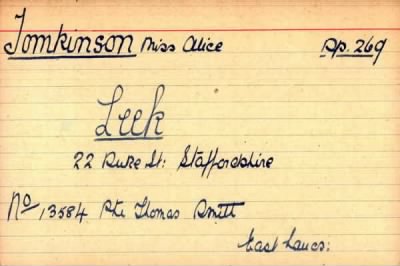 Tomkinson Miss Alice Sp. 269
Leek
22 Duke St: Staffordshire
No 13584 Pte Thomas Smitt
East Lancs: